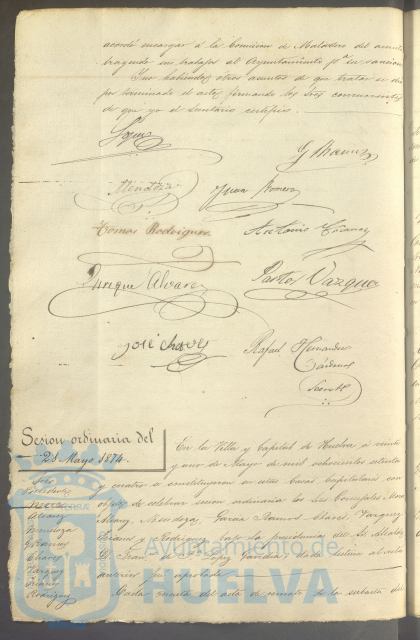 acordó encargar á la Comision de Matadero del asunto
trayendo sus trabajos al Ayuntamiento pª su sancion
Y no habiendo otros asuntos de que tratar se dió
por terminado el acto, firmando los Sres concurrentes
de que yo el Secretario certifico.
Mendoza
Juan Romero
Tomas Rodriguez
Antonio
Enrique Alvarez
Pastor Vazquez
José Chaves
Rafael Hernandez
Cárdenas
Secret
Sesion ordinaria del
21 Mayo 1874.
En la Villa y Capital de Huelva á veinte
y uno de Mayo de mil ochocientos setenta
y cuatro se constituyeron en estas Casas Capitulares con
objeto de celebrar sesion ordinaria los Sres Concejales Mora
Mendoza, Garcia Ramos, Chaves, Vazquez
Rodriguez bajo la presidencia del Sr. Alcalde
D. Fran
anterior fue aprobada
Dada cuenta del acta de remate de la subasta del
Sres
Presidente
Mendoza
Chaves
Vazquez
Rodriguez
Ayuntamiento de
HUELVA